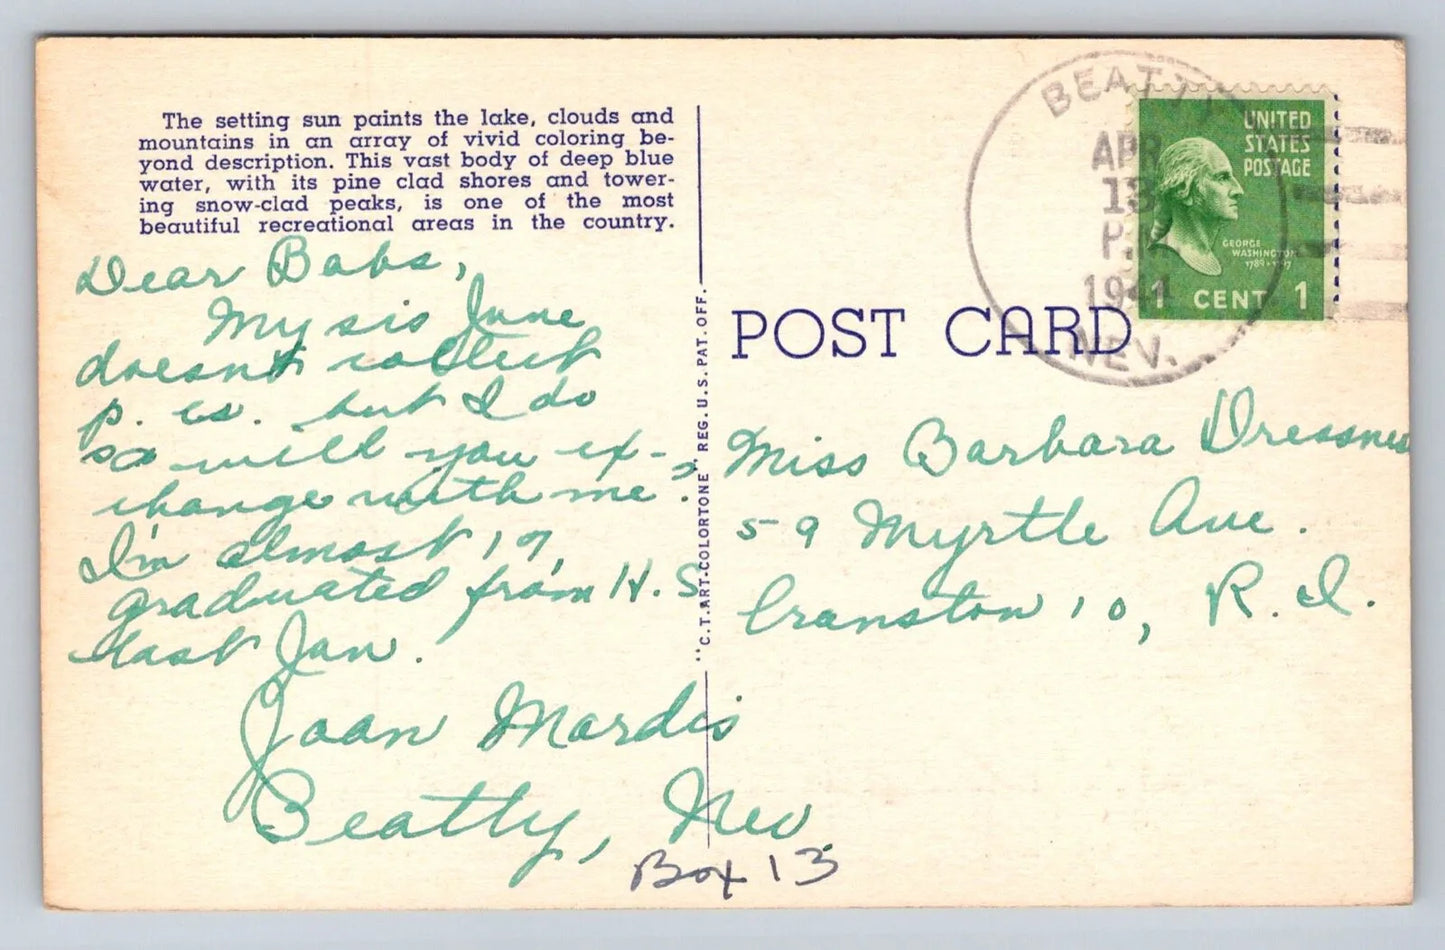 The setting sun paints the lake, clouds and
mountains in an array of vivid coloring be-
yond description. This vast body of deep blue
water, with its pine clad shores and tower-
ing snow-clad peaks, is one of the most
beautiful recreational areas in the country.
Dear Babs,
My sis June
doesn't collect
p. cs. but I do
so will you ex-
change with me?
I'm almost 17,
graduated from H.S.
last Jan.
Joan Mardis
Beatty, Nev.
Box 13
"C.T.ART-COLORTONE" REG. U.S. PAT. OFF.
POST CARD
BEATTY
APR
13
PM
1944
NEV.
UNITED
STATES
POSTAGE
GEORGE
WASHINGTON
1789-1797
1 CENT 1
Miss Barbara Dressner
59 Myrtle Ave.
Cranston 10, R. I.